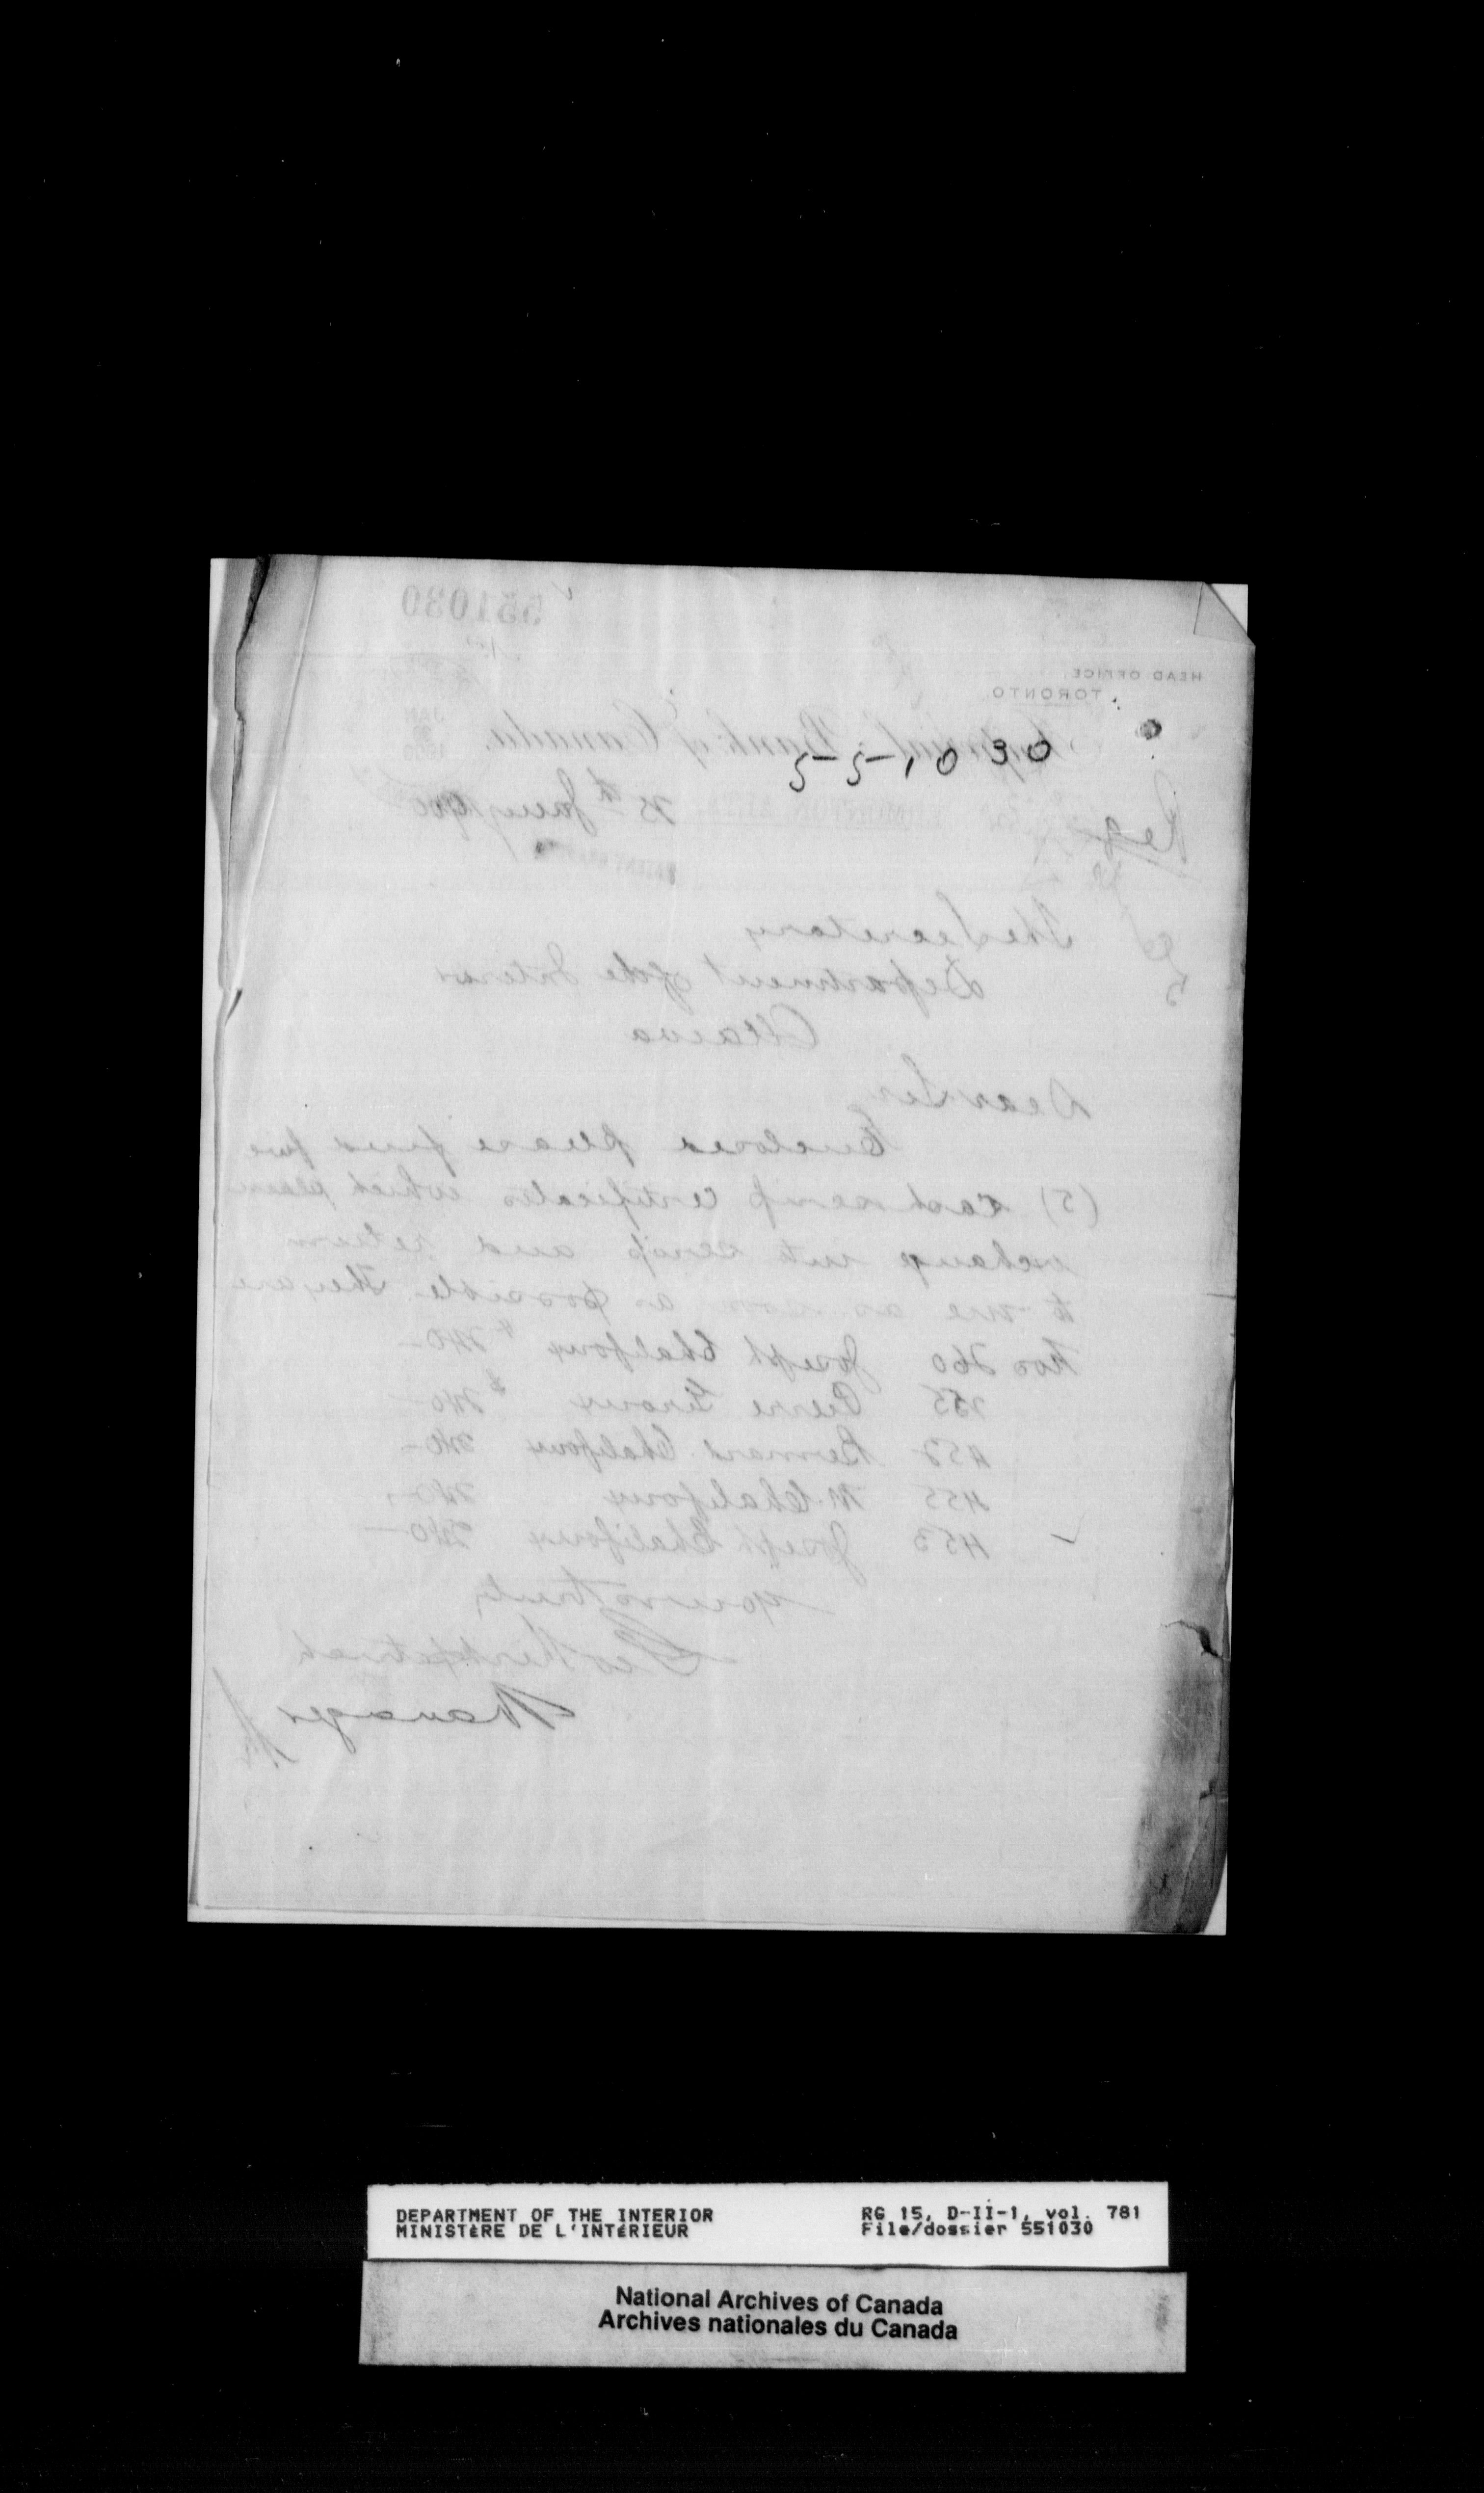 551030
HEAD OFFICE
TORONTO.
Imperial Bank of Canada.
JAN
1900
551030
EDMONTON, ALTA.
25th Jany 1900
The Secretary
Department of the Interior
Ottawa
Dear Sir
Enclosed please find five
(5) cash scrip certificates which please
exchange into scrip and return
to me as soon as possible. They are
Nos 260 Joseph Chalifoux $240-
255 Pierre Giroux $240-
452 Bernard Chalifoux 240-
455 M. Chalifoux 240-
453 Joseph Chalifoux 240-
Yours truly
Geo Kirkpatrick
Manager
DEPARTMENT OF THE INTERIOR
MINISTÈRE DE L'INTÉRIEUR
RG 15, D-II-1, vol. 781
File/dossier 551030
National Archives of Canada
Archives nationales du Canada